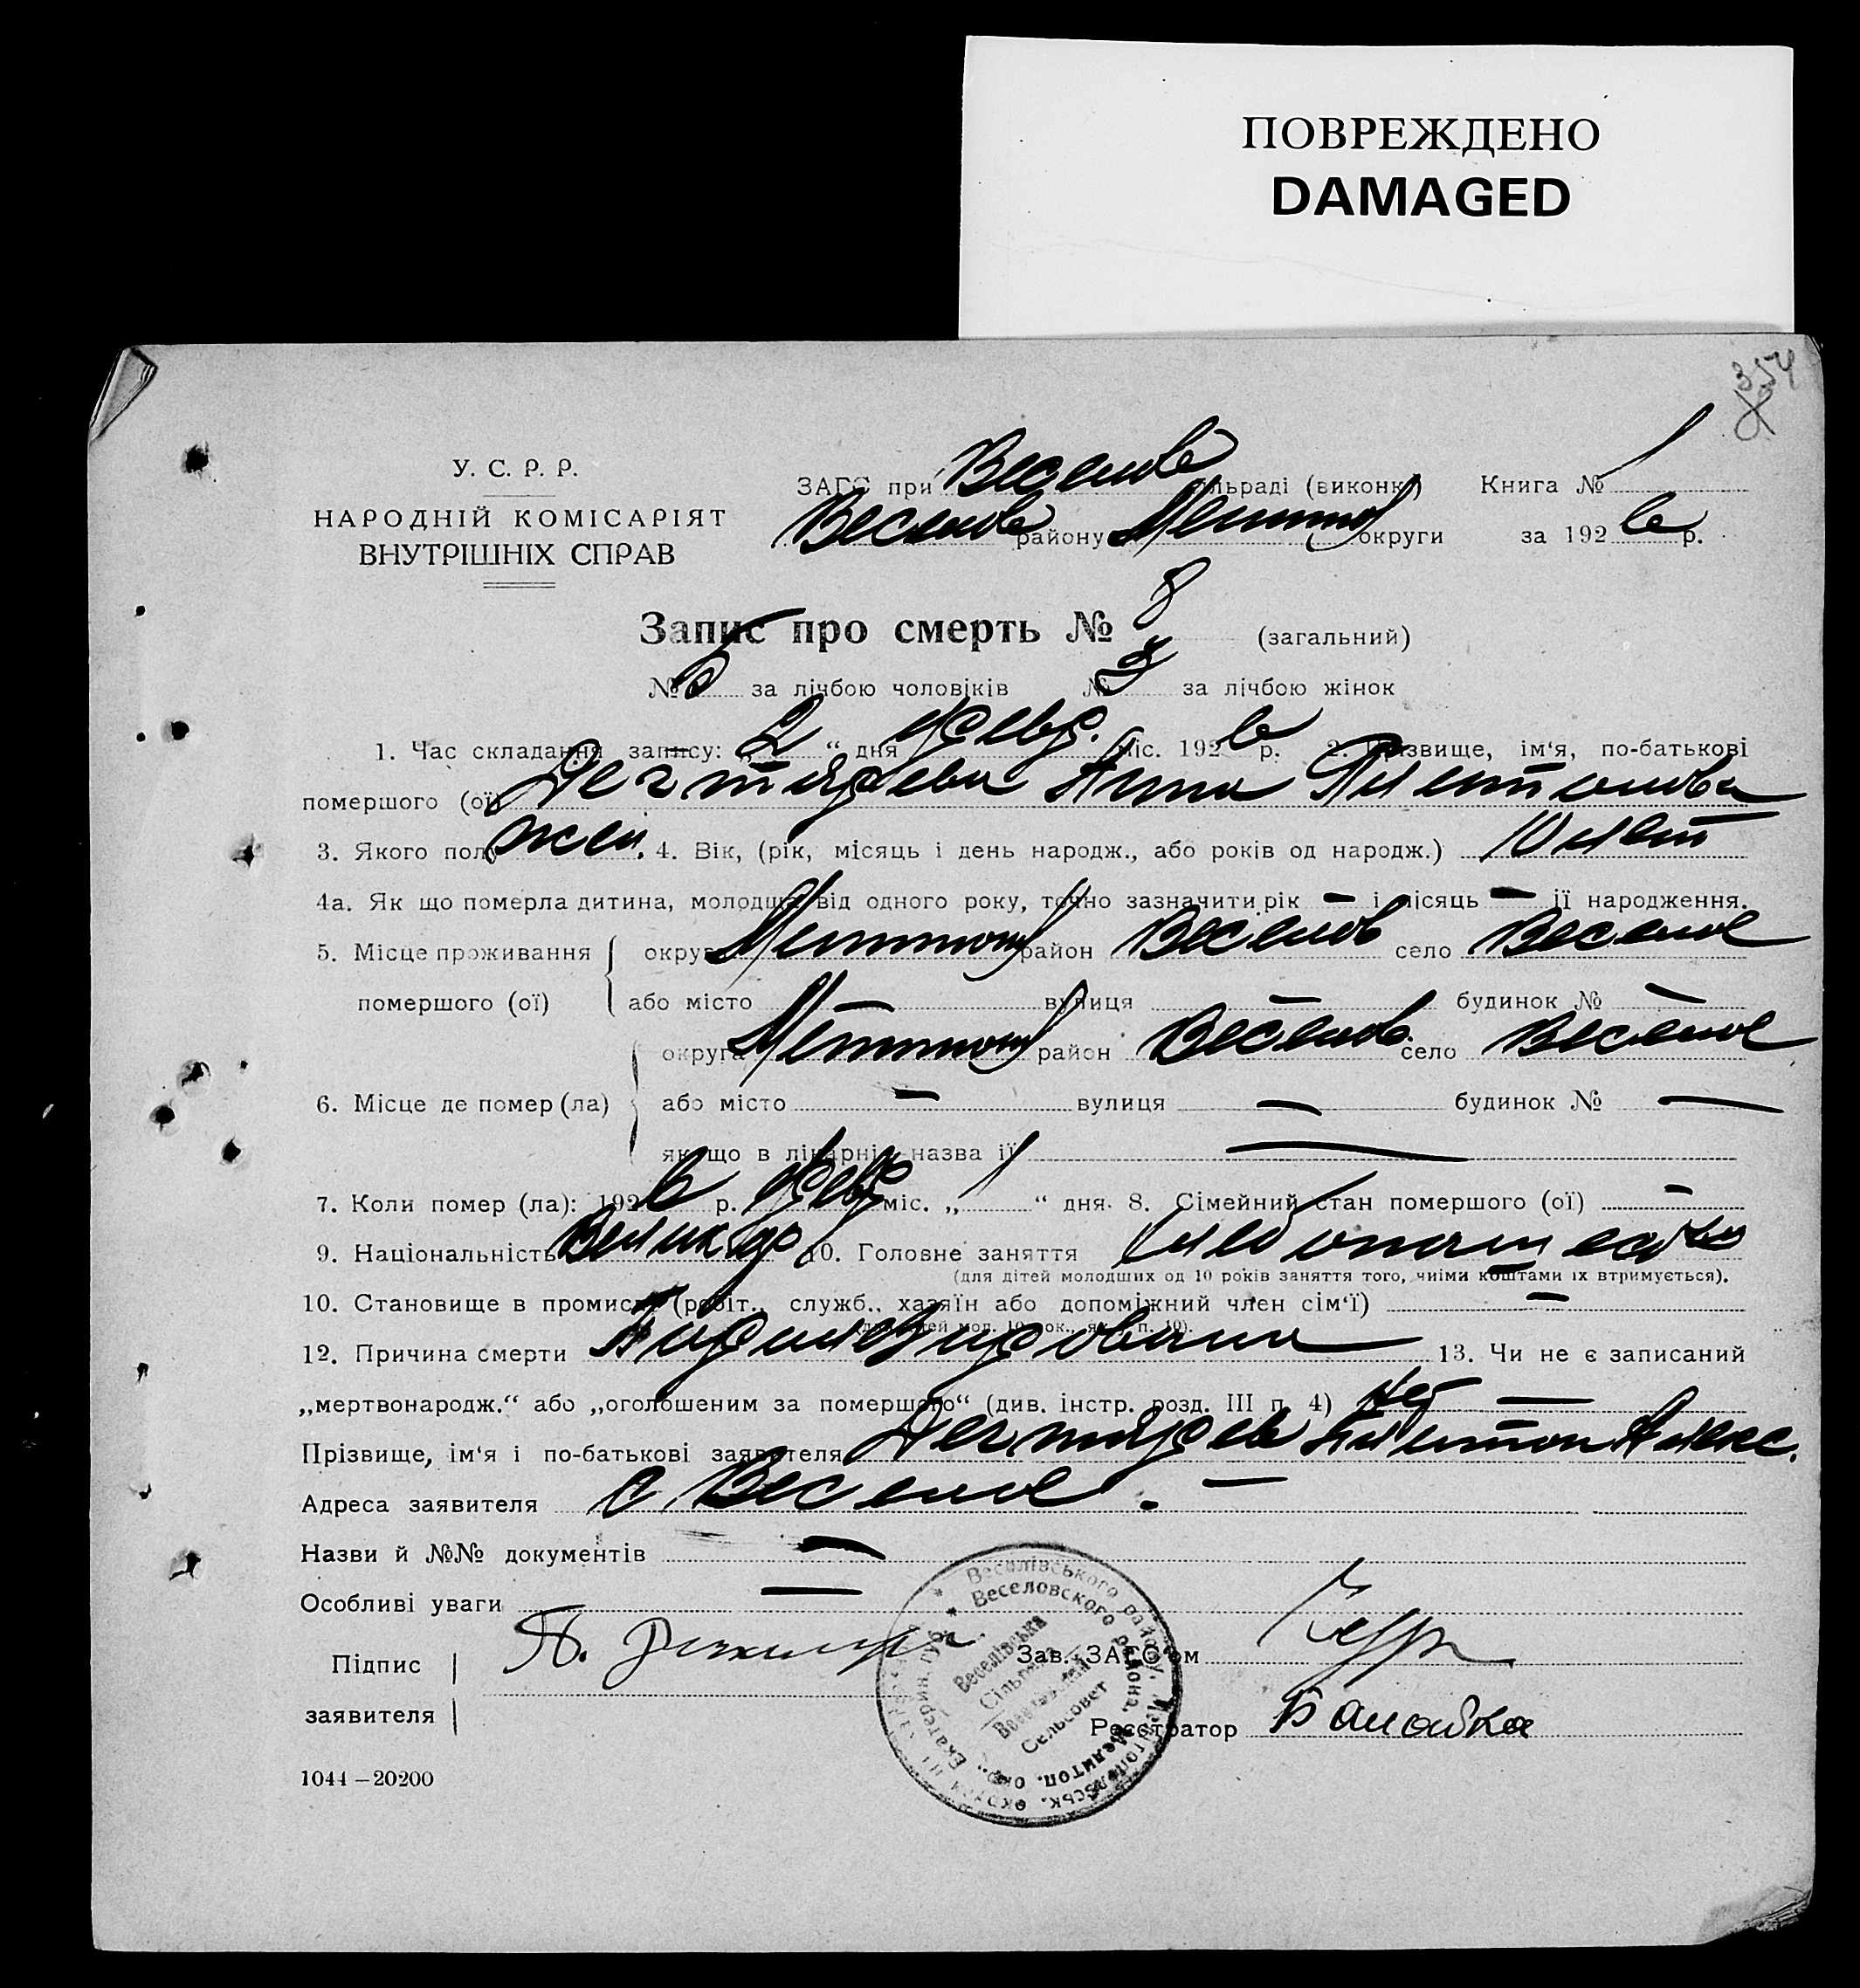 ПОВРЕЖДЕНО
DAMAGED
354
У. С. Р. Р.
НАРОДНІЙ КОМІСАРІЯТ
ВНУТРІШНІХ СПРАВ
ЗАГС при Веселов сільраді (виконк.) Книга № 1
Веселов району Мелитоп округи за 1926 р.
Запис про смерть № 8 (загальний)
№ 5 за лічбою чоловіків № 3 за лічбою жінок
1. Час складання запису: „ 2 “ дня февр. міс. 1926 р. 2. Прізвище, ім‘я, по-батькові
помершого (ої) Дегтярева Анна Платонова
3. Якого полу жен. 4. Вік, (рік, місяць і день народж., або років од народж.) 10 лет
4а. Як що померла дитина, молодша від одного року, точно зазначити рік — і місяць — її народження.
5. Місце проживання округа Мелитоп район Веселов село Веселое
помершого (ої) або місто — вулиця — будинок № —
округа Мелитоп район Веселов. село Веселое
6. Місце де помер (ла) або місто — вулиця — будинок № —
якщо в лікарні, назва її —
7. Коли помер (ла): 1926 р. февр міс. „ 1 “ дня. 8. Сімейний стан помершого (ої) —
9. Національність Великор 10. Головне заняття хлебопашество
(для дітей молодших од 10 років заняття того, чиїми коштами їх втримується).
10. Становище в промислі (робіт., служб., хазяїн або допоміжний член сім‘ї) —
12. Причина смерти 13. Чи не є записаний
„мертвонародж.“ або „оголошеним за померщого“ (див. інстр. розд. III п. 4) нет —
Прізвище, ім‘я і по-батькові заявителя Дегтярев Платон Алекс.
Адреса заявителя с. Веселое. —
Назви й №№ документів —
Особливі уваги —
Підпис
заявителя
Зав. ЗАГС‘ом
Реєстратор
Веселівського району, Мелітопільськ. округи
Веселовского района. Мелитоп. окр., Екатерин. губ.
Веселівська
Сільрада
Веселовский
Сельсовет
1044—20200